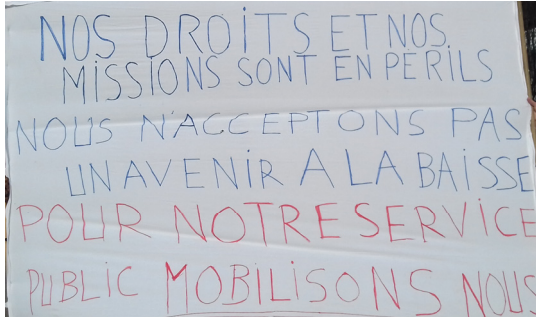 NOS DROITS ET NOS
MISSIONS SONT EN PERILS
NOUS N'ACCEPTONS PAS
UN AVENIR A LA BAISSE
POUR NOTRE SERVICE
PUBLIC MOBILISONS NOUS